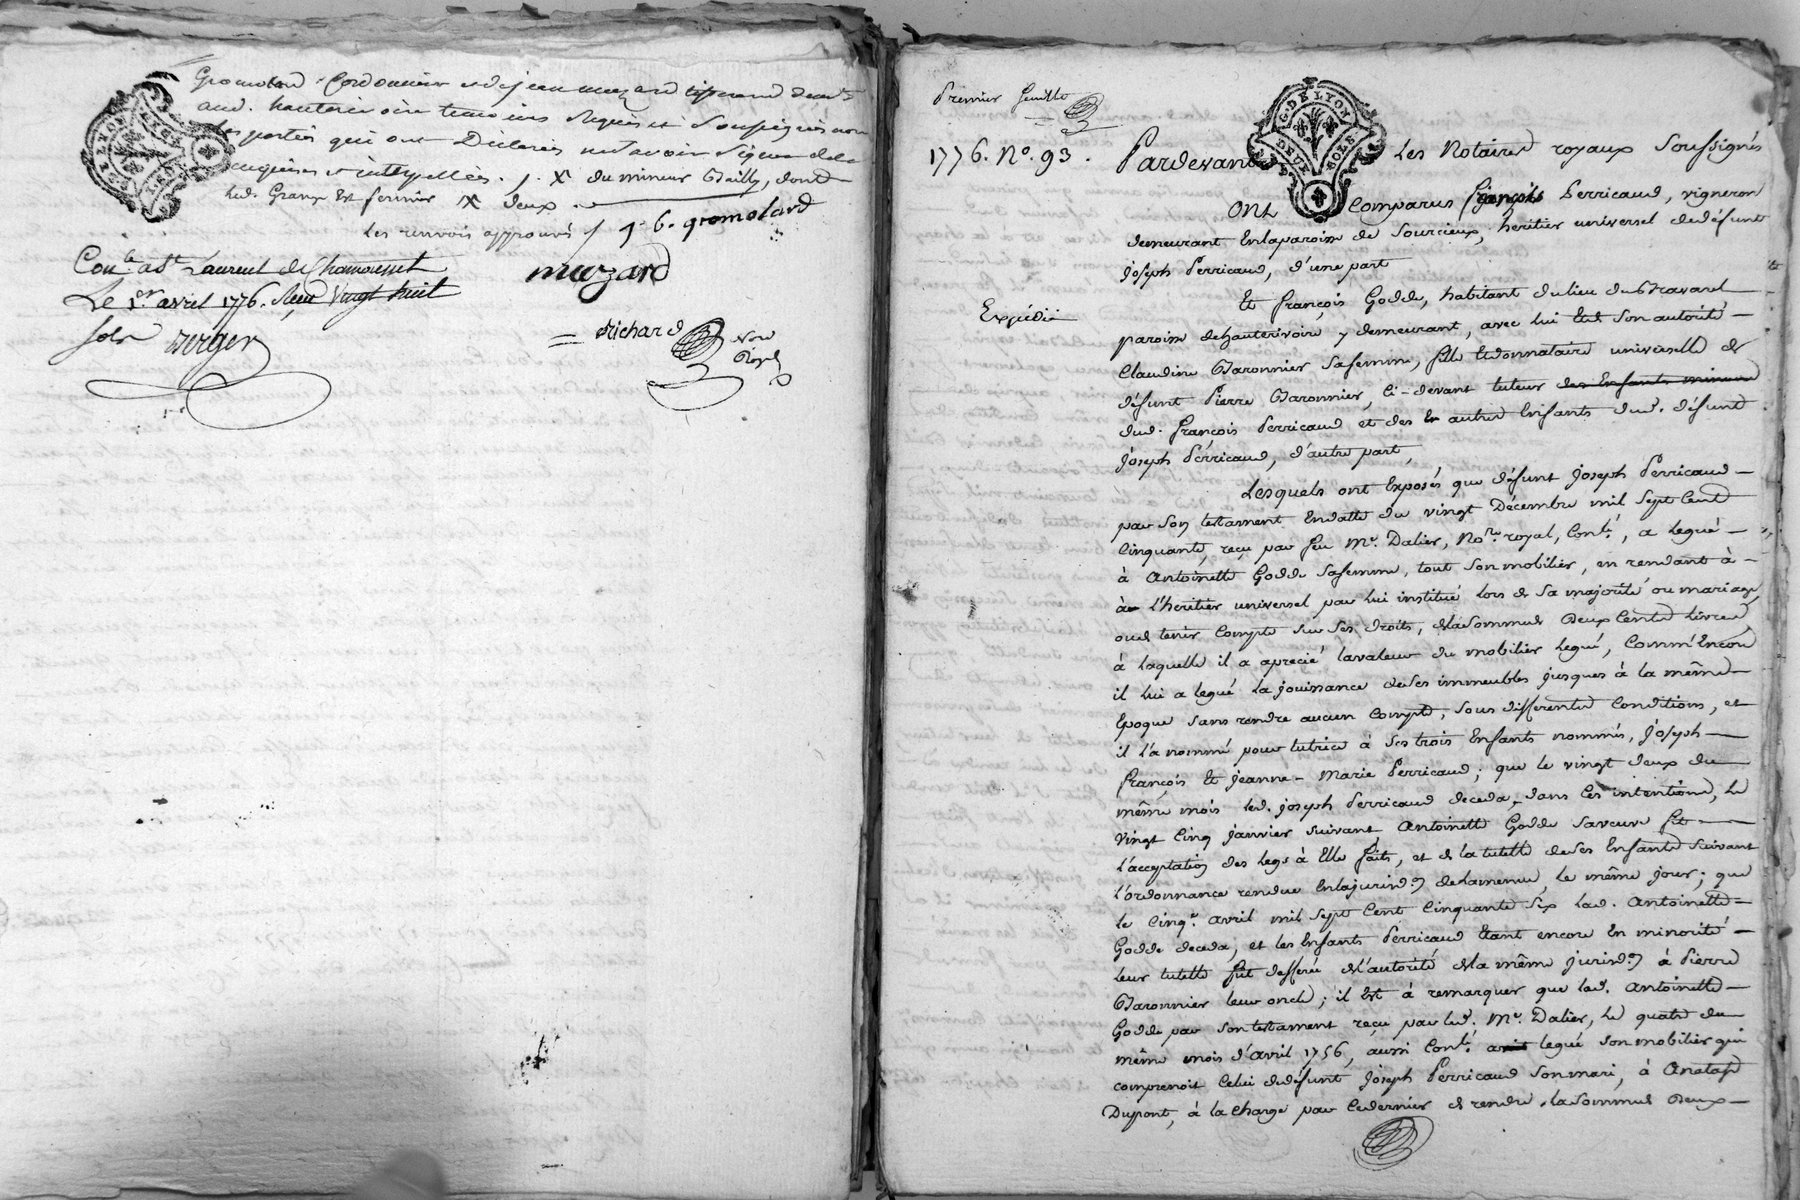 Gromolard Cordonnier et de jean muzard tisserand demts
aud. hauterivoire temoins requis et Soussignés non
les parties qui ont Déclarés ne Savoir Signer de ce
enquises et interpellées. /. X du mineur Bailly, dont
led. Grange Est fermier X deux
Les renvois approuvés / j. b. gromolard
Conlé. a St Laurent de Chamousset
muzard
Le 1er. avril 1776. Reçu Vingt huit
sols Berger
Richard
Nore
Royal
G. DE LYON
DEUX SOLS
Premier feuillet
1776. No. 93.
Pardevant Les Notaires royaux Soussignés
ONt Comparus françois Perricaud, vigneron
demeurant En la paroisse de Sourcieux, heritier universel de defunt
joseph Perricaud, d'une part
Expédié
Et françois Godde, habitant du lieu du Bravard
paroisse de hauterivoire y demeurant, avec lui Et de Son autorité
Claudine Baronnier Sa femme, fille Et donnataire universelle de
défunt Pierre Baronnier, Ci-devant tuteur des Enfants mineurs
dud. françois Perricaud et des autres Enfants dud. défunt
joseph Perricaud, d'autre part,
Lesquels ont Exposés que défunt joseph Perricaud
par Son testament En datte du vingt Décembre mil Sept Cent
Cinquante, reçu par feu Me. Dalier, Nore royal, Conlé, a Legué
à Antoinette Godde Sa femme, tout Son mobilier, en rendant à
à L'heritier universel par Lui institué Lors de Sa majorité ou mariage,
ou de tenir Compte Sur Ses droits, de la Somme de deux Cents Livres
à laquelle il a aprecié la valeur du mobilier Legué, Comm'Encore
il lui a legué la jouissance de Ses immeubles jusques à la même
Epoque Sans rendre aucun Compte, Sous differentes Conditions, et
il l'a nommé pour tutrice à Ses trois Enfants nommés, joseph
françois Et jeanne-Marie Perricaud; que le vingt deux du
même mois led. joseph Perricaud deceda, dans Ces intentions, Le
vingt Cinq janvier Suivant Antoinette Godde Sa veuve fit
L'acceptation des Legs à Elle faits, et de la tutelle de Ses Enfants Suivant
L'ordonnance rendue En la jurisdon de Lamenue, Le même jour; que
le Cinqe. Avril mil Sept Cent Cinquante Six lad. Antoinette
Godde deceda, et les Enfants Perricaud Etant encore En minorité
Leur tutelle fut defferée de L'autorité de la même jurisdon à Pierre
Baronnier leur oncle; il Est à remarquer que lad. Antoinette
Godde par Son testament reçu par led. Me. Dalier, Le quatre du
même mois d'avril 1756, aussi Conlé. avoit legué Son mobilier qui
comprenoit Celui de défunt joseph Perricaud Son mari, à Anatase
Dupont, à la Charge par Ce dernier de rendre la Somme de deux